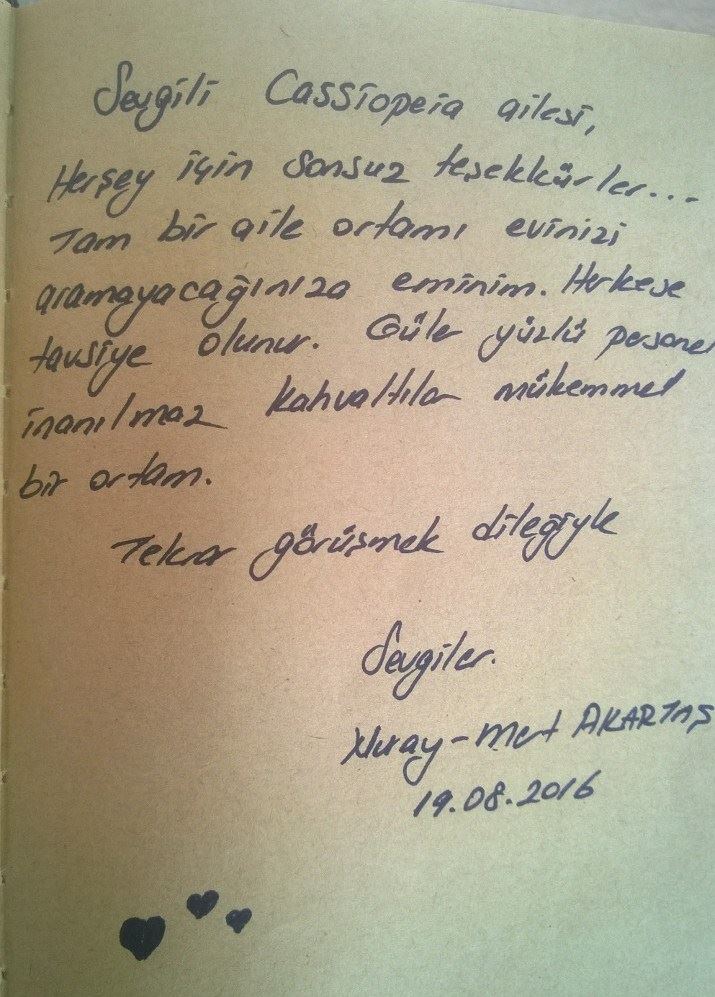 Sevgili Cassiopeia ailesi,
Herşey için sonsuz teşekkürler...
Tam bir aile ortamı evinizi
aramayacağınıza eminim. Herkese
tavsiye olunur. Güler yüzlü personel
inanılmaz kahvaltılar mükemmel
bir ortam.
Tekrar görüşmek dileğiyle
Sevgiler.
Nuray-Mert AKARTAŞ
19.08.2016